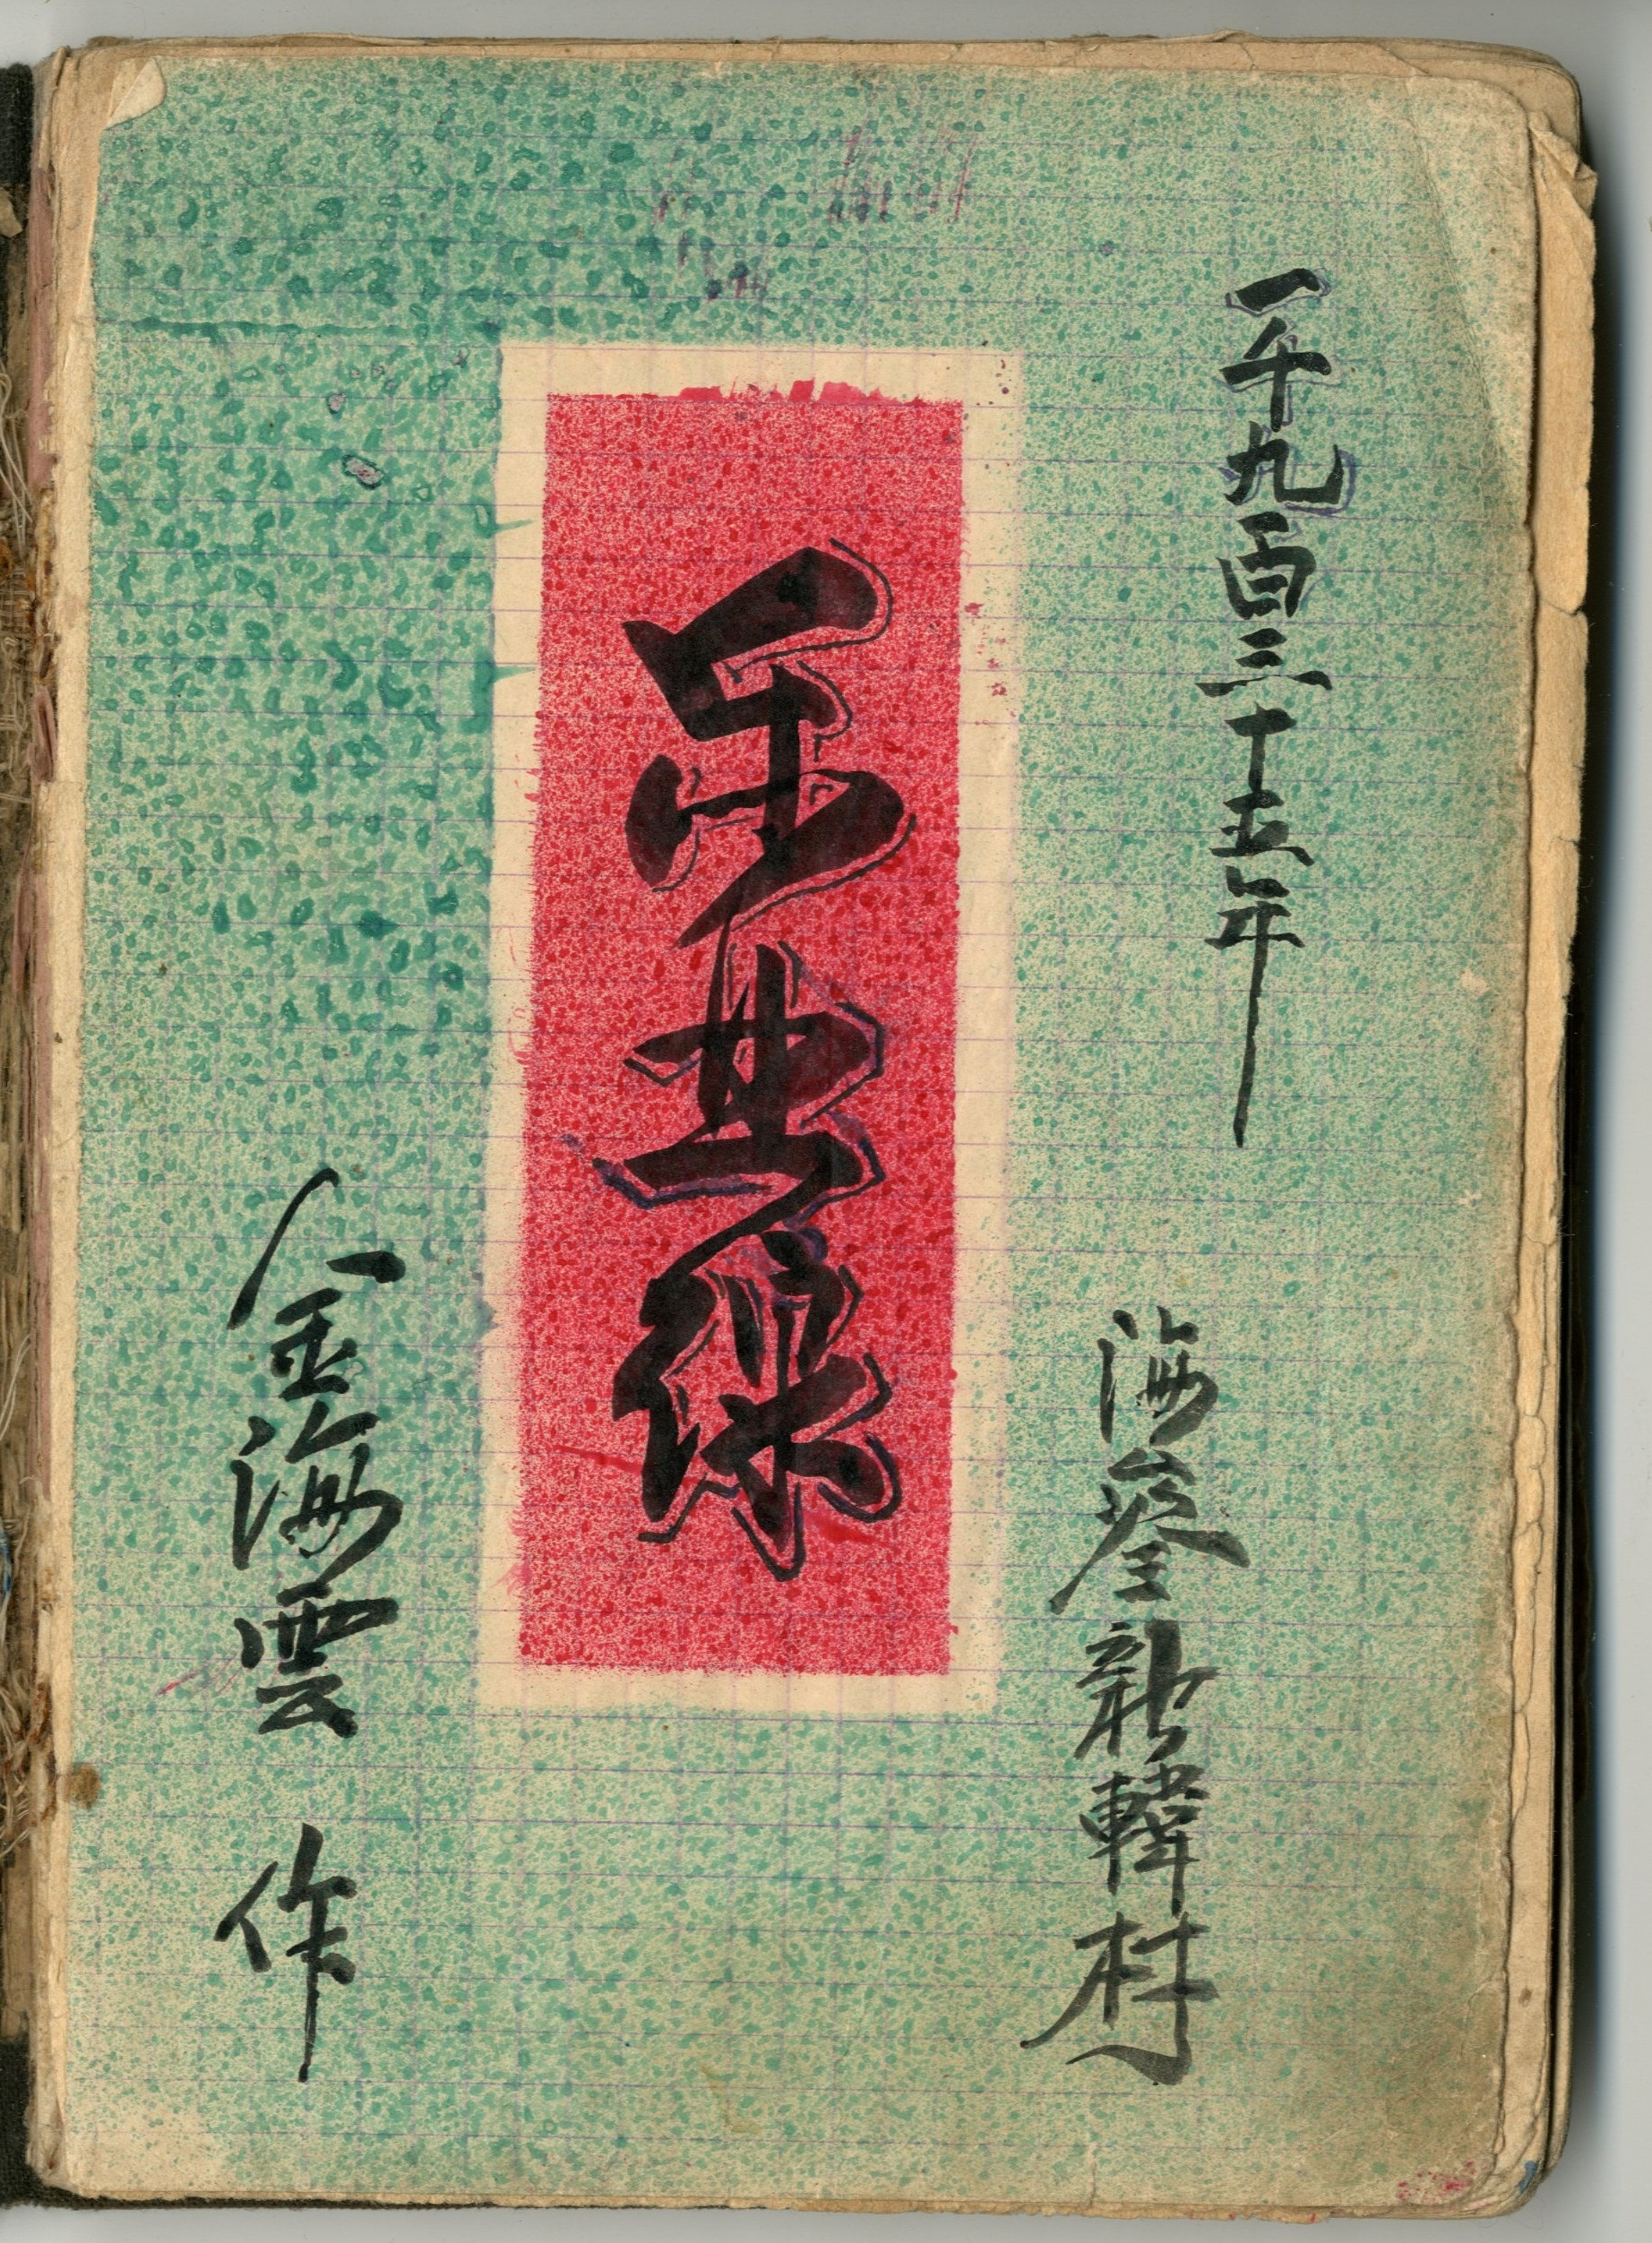 一千九百三十五年
海參新韓村
東北線
金海雲 作